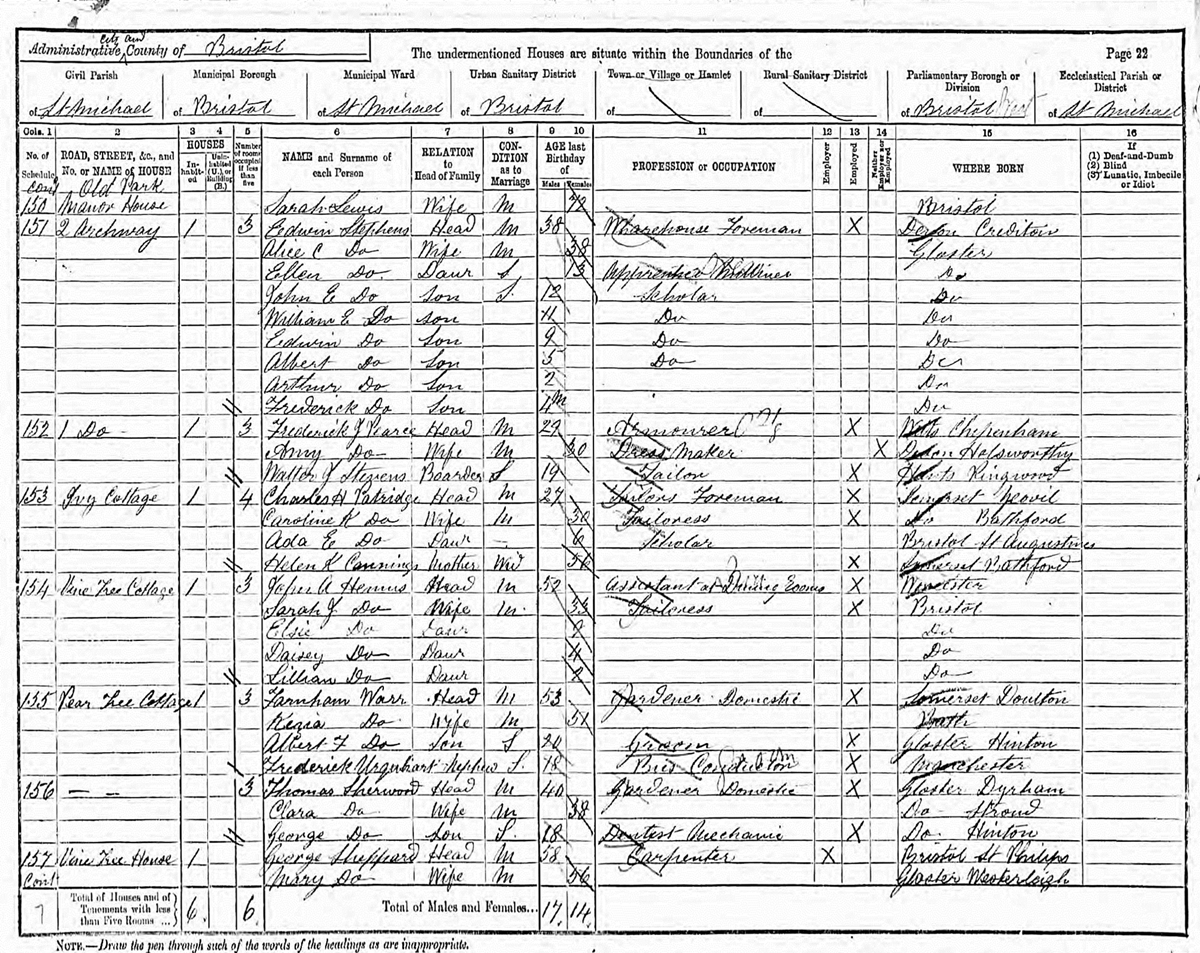 Administrative City and County of Bristol
The undermentioned Houses are situate within the Boundaries of the
Page 22
Civil Parish of St Michael
Municipal Borough of Bristol
Municipal Ward of St Michael
Urban Sanitary District of Bristol
Town or Village or Hamlet of
Rural Sanitary District of
Parliamentary Borough or Division of Bristol West
Ecclesiastical Parish or District of St Michael
Cols. 1 2 3 4 5 6 7 8 9 10 11 12 13 14 15 16
No. of Schedule
ROAD, STREET, &c., and No. or NAME of HOUSE
HOUSES
In-habit-ed
Unin-habited (U.), or Building (B.)
Number of rooms occupied if less than five
NAME and Surname of each Person
RELATION to Head of Family
CON-DITION as to Marriage
AGE last Birthday of
Males Females
PROFESSION or OCCUPATION
Employer
Employed
Neither Employer nor Employed
WHERE BORN
If
(1) Deaf-and-Dumb
(2) Blind
(3) Lunatic, Imbecile or Idiot
Cont Old Park
150 Manor House Sarah Lewis Wife M 72 Bristol
151 2 Archway 1 3 Edwin Stephens Head M 38 Wharehouse Foreman X Devon Crediton
Alice C Do Wife M 38 Gloster
Ellen Do Daur S 13 Apprentice Milliner Do
John E Do Son S. 12 Scholar Do
William E Do Son 11 Do Do
Edwin Do Son 9 Do Do
Albert Do Son 5 Do Do
Arthur Do Son 2 Do
Frederick Do Son 4m Do
152 1 Do 1 3 Frederick J Pearce Head M 29 Armourer X Wilts Chipenham
Amy Do Wife M 30 Dress Maker X Devon Holsworthy
Walter J Stevens Boarder S 19 Tailor X Hants Ringwood
153 Ivy Cottage 1 4 Charles H Patridge Head M 27 Tailors Foreman X Somerset Yeovil
Caroline K Do Wife M 30 Tailoress X Do Bathford
Ada E Do Daur — 6 Scholar Bristol St Augustines
Helen K Cannings Mother Wid 56 X Somerset Bathford
154 Vine Tree Cottage 1 3 John A Hemus Head M 52 Assistant at Dining Rooms X Worcester
Sarah J Do Wife M 33 Tailoress X Bristol
Elsie Do Daur Do
Daisey Do Daur 4 Do
Lillian Do Daur 2 Do
155 Pear Tree Cottage 1 3 Farnham Warr Head M 53 Gardener Domestic X Somerset Doulton
Kezia Do Wife M 51 Bath
Albert F Do Son S 20 Groom X Gloster Hinton
Frederick Urquhart Nephew S. 18 Bus Conductor Tram X Manchester
156 — — 3 Thomas Sherwood Head M 40 Gardener Domestic X Gloster Dyrham
Clara Do Wife M 38 Do Stroud
George Do Son S. 18 Dentist Mechanic X Do Hinton
157 Vine Tree House 1 George Sheppard Head M 58 Carpenter X Bristol St Philips
Cont Mary Do Wife M 56 Gloster Westerleigh
7 Total of Houses and of Tenements with less than Five Rooms ... 6. 6. Total of Males and Females... 17. 14.
NOTE.—Draw the pen through such of the words of the headings as are inappropriate.